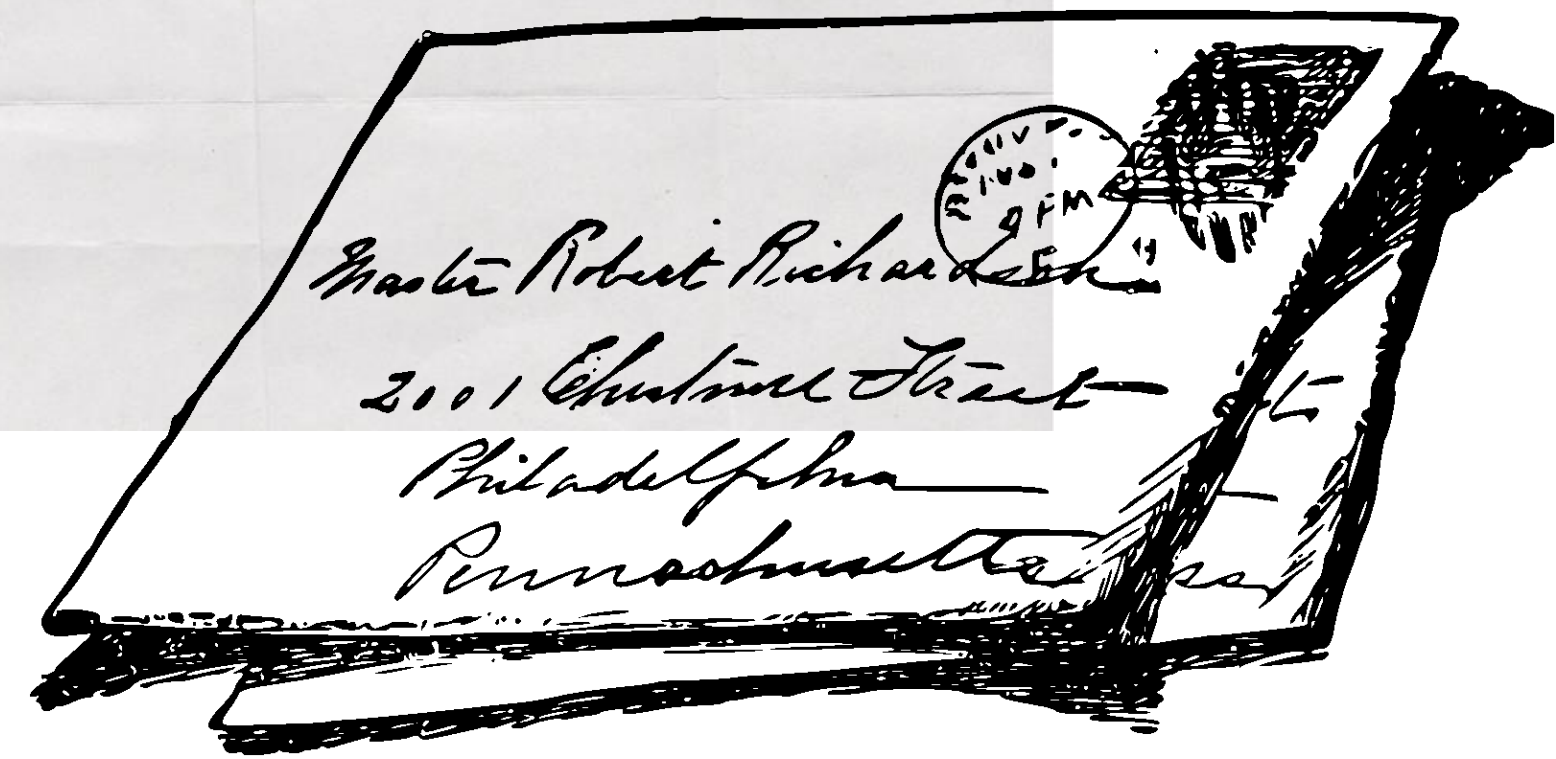 PM
Master Robert Richardson
2001 Chestnut Street
Philadelphia
Pennsachusetts